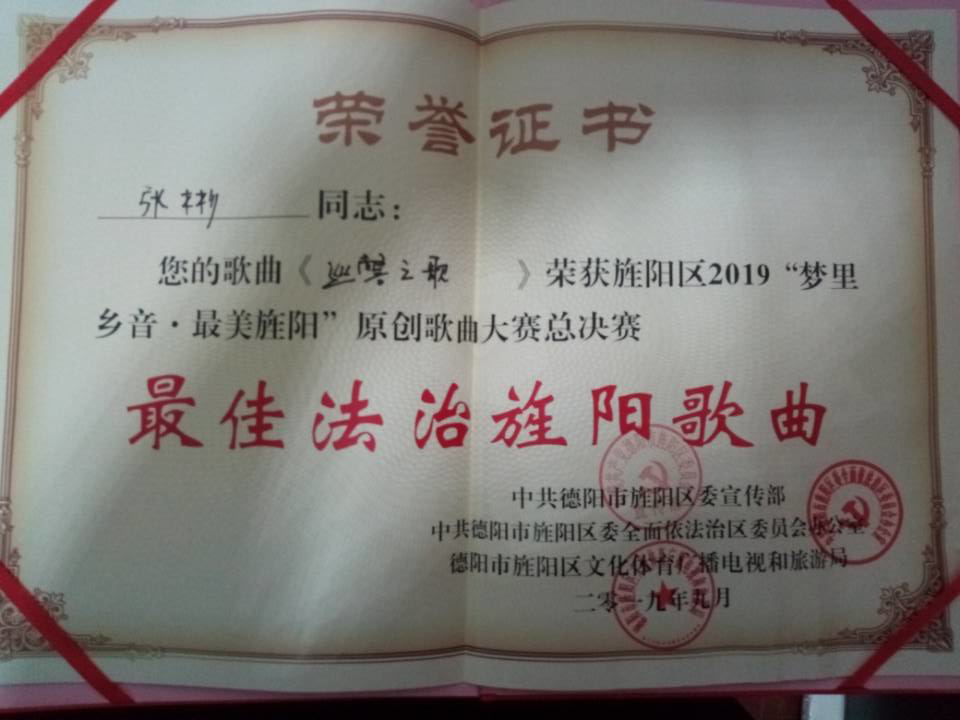 荣誉证书
张彬 同志：
您的歌曲《巡警之歌》荣获旌阳区2019“梦里
乡音·最美旌阳”原创歌曲大赛总决赛
最佳法治旌阳歌曲
中共德阳市旌阳区委宣传部
中共德阳市旌阳区委全面依法治区委员会办公室
德阳市旌阳区文化体育广播电视和旅游局
二零一九年九月